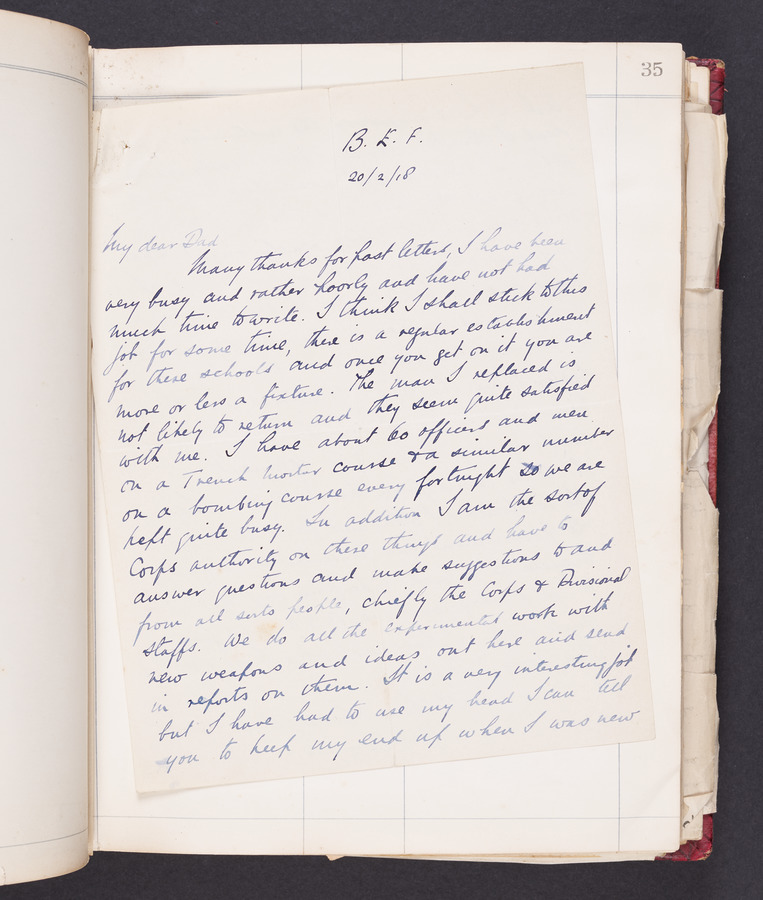 35
B. E. F.
20/2/18
My dear Dad
Many thanks for past letters, I have been
very busy and rather poorly and have not had
much time to write. I think I shall stick to this
job for some time, there is a regular establishment
for these schools and once you get on it you are
more or less a fixture. The man I replaced is
not likely to return and they seem quite satisfied
with me. I have about 60 officers and men
on a Trench Mortar course & a similar number
on a bombing course every fortnight so we are
kept quite busy. In addition I am the sort of
Corps authority on these things and have to
answer questions and make suggestions to and
from all sorts people, chiefly the Corps & Divisional
staffs. We do all the experimental work with
new weapons and ideas out here and send
in reports on them. It is a very interesting job
but I have had to use my head I can tell
you to keep my end up when I was new